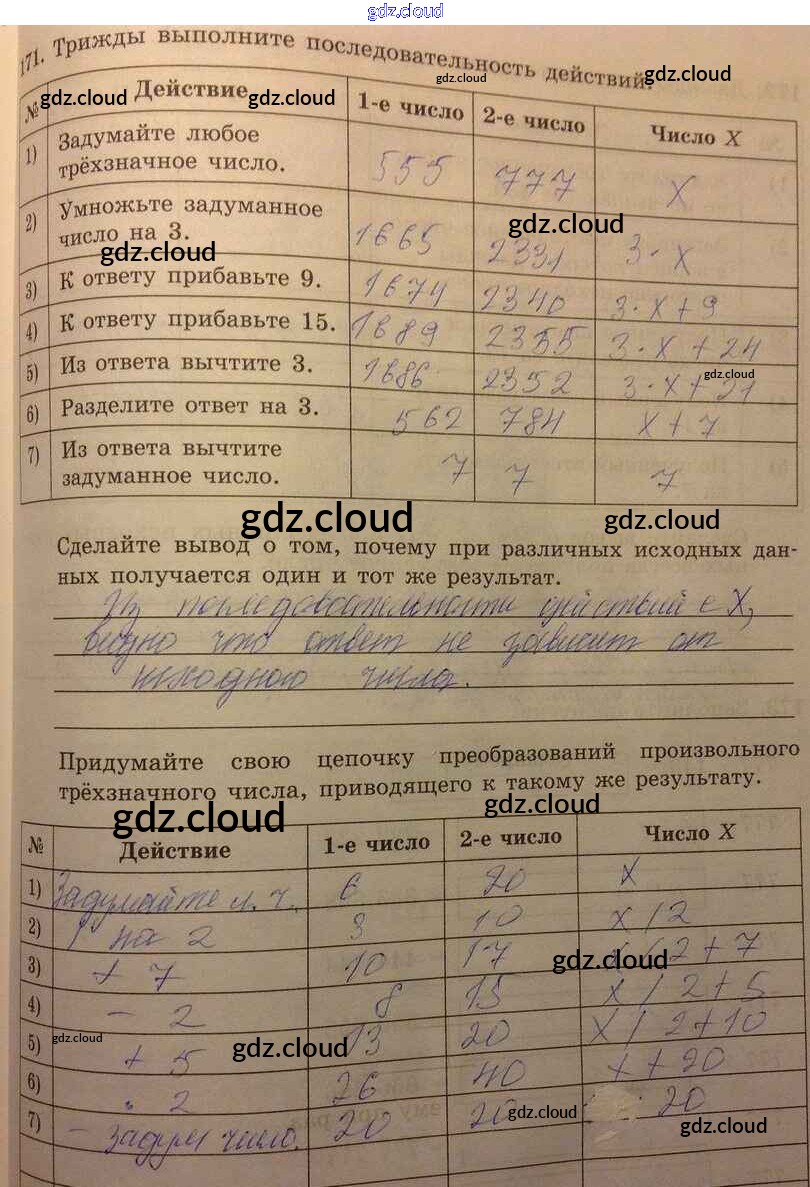 gdz.cloud
171. Трижды выполните последовательность действий.
gdz.cloud gdz.cloud
№ Действие 1-е число 2-е число Число X
gdz.cloud gdz.cloud
1) Задумайте любое трёхзначное число. 555 777 X
2) Умножьте задуманное число на 3. 1665 2331 3·X
gdz.cloud gdz.cloud
3) К ответу прибавьте 9. 1674 2340 3·X+9
4) К ответу прибавьте 15. 1689 2355 3·X+24
5) Из ответа вычтите 3. 1686 2352 3·X+21
gdz.cloud
6) Разделите ответ на 3. 562 784 X+7
7) Из ответа вычтите задуманное число. 7 7 7
gdz.cloud gdz.cloud
Сделайте вывод о том, почему при различных исходных дан-
ных получается один и тот же результат.
Из последовательности действий с X,
видно что ответ не зависит от
исходного числа.
Придумайте свою цепочку преобразований произвольного
трёхзначного числа, приводящего к такому же результату.
gdz.cloud gdz.cloud
№ Действие 1-е число 2-е число Число X
1) Задумайте л. ч. 6 20 X
2) / на 2 3 10 x/2
3) + 7 10 17 x/2+7
gdz.cloud
4) - 2 8 15 x/2+5
5) + 5 13 20 x/2+10
gdz.cloud gdz.cloud
6) · 2 26 40 x+20
7) - задум число. 20 20 20
gdz.cloud gdz.cloud